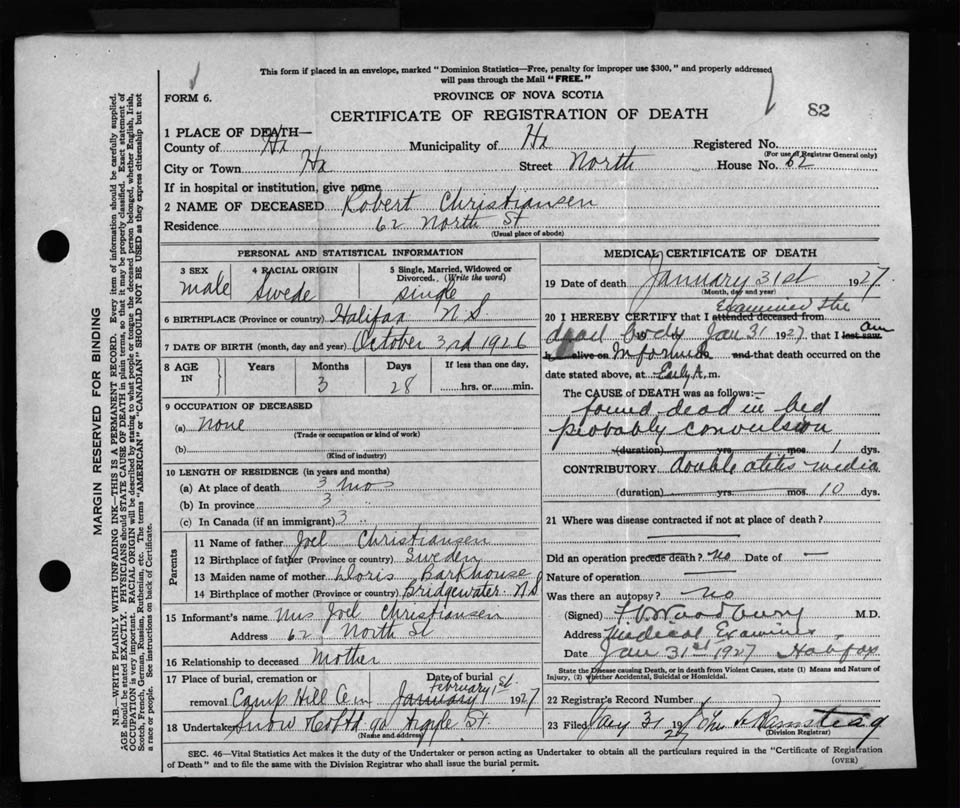 This form if placed in an envelope, marked "Dominion Statistics—Free, penalty for improper use $300," and properly addressed
will pass through the Mail "FREE."
FORM 6.
PROVINCE OF NOVA SCOTIA
82
CERTIFICATE OF REGISTRATION OF DEATH
1 PLACE OF DEATH—
County of Hx Municipality of Hx Registered No.
(For use of Registrar General only)
City or Town Hx Street North House No. 62
If in hospital or institution, give name
2 NAME OF DECEASED Robert Christiansen
Residence 62 North St
(Usual place of abode)
PERSONAL AND STATISTICAL INFORMATION
3 SEX male
4 RACIAL ORIGIN Swede
5 Single, Married, Widowed or Divorced. (Write the word) single
6 BIRTHPLACE (Province or country) Halifax N S
7 DATE OF BIRTH (month, day and year) October 3rd 1926
8 AGE IN Years Months 3 Days 28 If less than one day, hrs. or min.
9 OCCUPATION OF DECEASED
(a) none
(Trade or occupation or kind of work)
(b)
(Kind of industry)
10 LENGTH OF RESIDENCE (in years and months)
(a) At place of death 3 mos
(b) In province 3 "
(c) In Canada (if an immigrant) 3 "
Parents
11 Name of father Joel Christiansen
12 Birthplace of father (Province or country) Sweden
13 Maiden name of mother Doris Barkhouse
14 Birthplace of mother (Province or country) Bridgewater N S
15 Informant's name Mrs Joel Christiansen
Address 62 North St
16 Relationship to deceased Mother
17 Place of burial, cremation or removal Camp Hill Cem
Date of burial January February 1st 1927
18 Undertaker Snow & Co Ltd 90 Argyle St.
(Name and address)
MEDICAL CERTIFICATE OF DEATH
19 Date of death January 31st 1927
(Month, day and year)
Examined the
20 I HEREBY CERTIFY that I attended deceased from
dead body Jan 31 1927 that I last saw am
h alive on informed and that death occurred on the
date stated above, at Early A. m.
The CAUSE of DEATH was as follows:—
found dead in bed
probably convulsion
(duration) yrs. mos. 1 dys.
CONTRIBUTORY double otitis media
(duration) yrs. mos. 10 dys.
21 Where was disease contracted if not at place of death?
Did an operation precede death? no Date of —
Nature of operation —
Was there an autopsy? no
(Signed) Woodbury M.D.
Address Medical Examiner
Date Jan 31st 1927 Halifax
State the Disease causing Death, or in death from Violent Causes, state (1) Means and Nature of
Injury, (2) whether Accidental, Suicidal or Homicidal.
22 Registrar's Record Number
23 Filed Jany 31 1927
(Division Registrar)
SEC. 46—Vital Statistics Act makes it the duty of the Undertaker or person acting as Undertaker to obtain all the particulars required in the "Certificate of Registration
of Death" and to file the same with the Division Registrar who shall issue the burial permit.
(OVER)
MARGIN RESERVED FOR BINDING
N.B.—WRITE PLAINLY WITH UNFADING INK—THIS IS A PERMANENT RECORD. Every item of information should be carefully supplied.
AGE should be stated EXACTLY. PHYSICIANS should STATE CAUSE OF DEATH in plain terms, so that it may be properly classified. Exact statement of
OCCUPATION is very important. RACIAL ORIGIN will be described by stating to what people or tongue the deceased person belonged, whether English, Irish,
Scotch, French, German, Russian, Ruthenian, etc. The terms "AMERICAN" or "CANADIAN" SHOULD NOT BE USED as they express citizenship but not
a race or people. See instructions on back of Certificate.